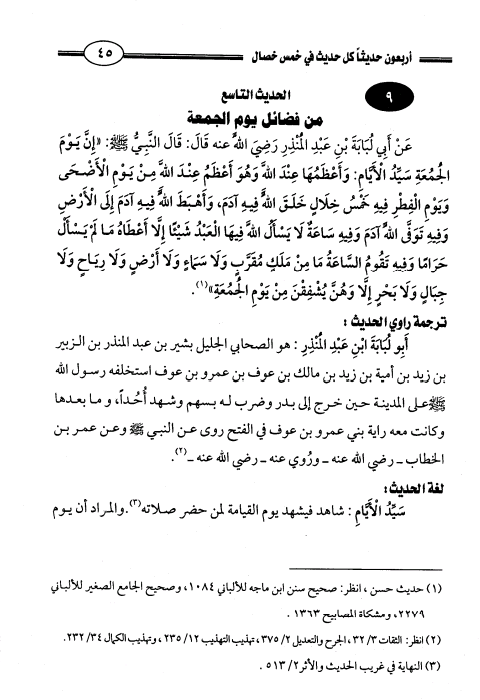 أربعون حديثاً كل حديث في خمس خصال
٤٥
٩
الحديث التاسع
من فضائل يوم الجمعة
عَنْ أَبِي لُبَابَةَ بْنِ عَبْدِ الْمُنْذِرِ رَضِيَ اللهُ عنه قَالَ: قَالَ النَّبِيُّ ﷺ: «إِنَّ يَوْمَ
الجُمُعَةِ سَيِّدُ الْأَيَّامِ: وَأَعْظَمُهَا عِنْدَ اللهِ وَهُوَ أَعْظَمُ عِنْدَ اللهِ مِنْ يَوْمِ الْأَضْحَى
وَيَوْمِ الْفِطْرِ فِيهِ خَمْسُ خِلَالٍ خَلَقَ اللهُ فِيهِ آدَمَ، وَأَهْبَطَ اللهُ فِيهِ آدَمَ إِلَى الْأَرْضِ
وَفِيهِ تَوَفَّى اللهُ آدَمَ وَفِيهِ سَاعَةٌ لَا يَسْأَلُ اللهَ فِيهَا الْعَبْدُ شَيْئًا إِلَّا أَعْطَاهُ مَا لَمْ يَسْأَلْ
حَرَامًا وَفِيهِ تَقُومُ السَّاعَةُ مَا مِنْ مَلَكٍ مُقَرَّبٍ وَلَا سَمَاءٍ وَلَا أَرْضٍ وَلَا رِيَاحٍ وَلَا
جِبَالٍ وَلَا بَحْرٍ إِلَّا وَهُنَّ يُشْفِقْنَ مِنْ يَوْمِ الْجُمُعَةِ»(١).
ترجمة راوي الحديث :
أَبُو لُبَابَةَ ابْنِ عَبْدِ الْمُنْذِرِ : هو الصحابي الجليل بشير بن عبد المنذر بن الزبير
بن زيد بن أمية بن زيد بن مالك بن عوف بن عمرو بن عوف استخلفه رسول الله
ﷺ على المدينة حين خرج إلى بدر وضرب له بسهم وشهد أُحُداً، و ما بعدها
وكانت معه راية بني عمرو بن عوف في الفتح روى عن النبي ﷺ وعن عمر بن
الخطاب ـ رضي الله عنه ـ ورُوي عنه ـ رضي الله عنه ـ(٢).
لغة الحديث:
سَيِّدُ الْأَيَّامِ : شاهد فيشهد يوم القيامة لمن حضر صلاته(٣).والمراد أن يوم
(١) حديث حسن ، انظر: صحيح سنن ابن ماجه للألباني ١٠٨٤، وصحيح الجامع الصغير للألباني
٢٢٧٩، ومشكاة المصابيح ١٣٦٣ .
(٢) انظر: الثقات ٣/ ٣٢، الجرح والتعديل ٢/ ٣٧٥، تهذيب التهذيب ١٢/ ٢٣٥، وتهذيب الكمال ٣٤/ ٢٣٢.
(٣) النهاية في غريب الحديث والأثر٢/ ٥١٣.